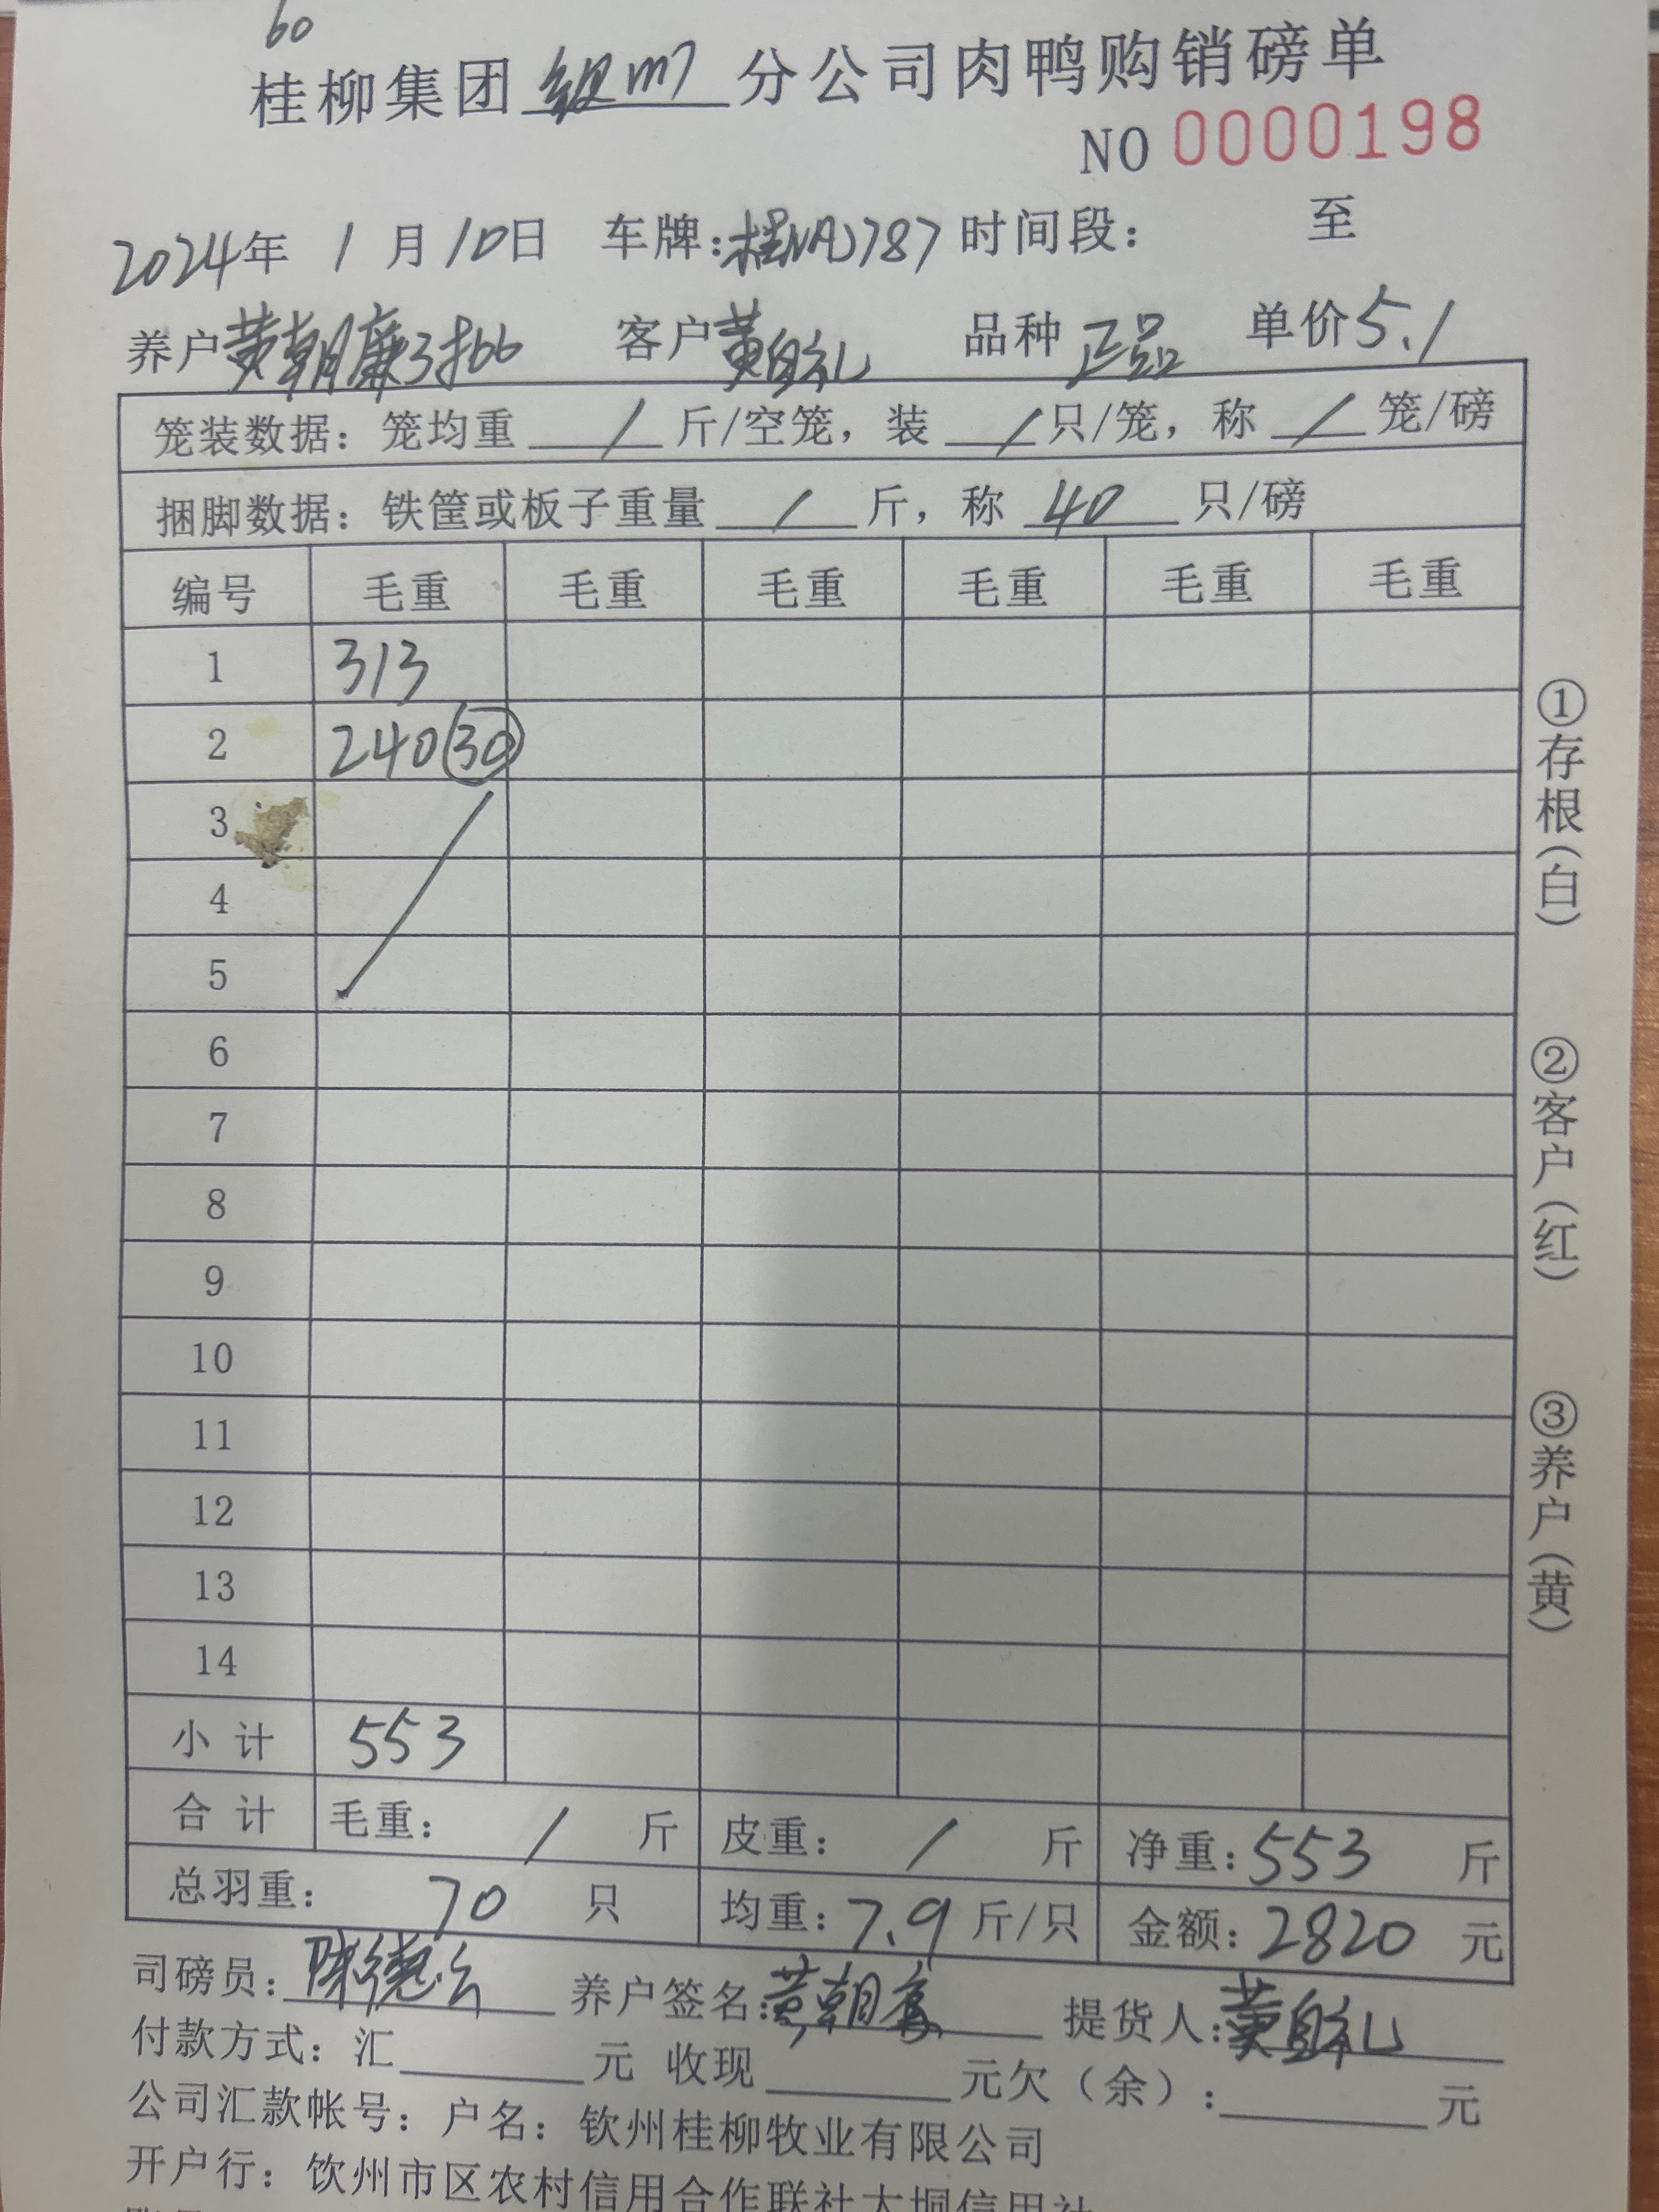 60
桂柳集团 分公司肉鸭购销磅单
NO 0000198
2024年 1月10日 车牌:桂 787 时间段: 至
养户黄朝廉3批66 客户黄自礼 品种 正品 单价5.1
笼装数据: 笼均重 / 斤/空笼, 装 / 只/笼, 称 / 笼/磅
捆脚数据: 铁筐或板子重量 / 斤, 称 40 只/磅
编号 毛重 毛重 毛重 毛重 毛重 毛重
1 313
2 240 30
3
4
5
6
7
8
9
10
11
12
13
14
小 计 553
合 计 毛重: / 斤 皮重: / 斤 净重:553 斤
总羽重: 70 只 均重:7.9 斤/只 金额:2820 元
司磅员:陈德 养户签名:黄朝 提货人:黄自礼
付款方式: 汇 元 收现 元欠(余): 元
公司汇款帐号: 户名: 钦州桂柳牧业有限公司
开户行: 钦州市区农村信用合作联社大垌信用社
①存根(白)
②客户(红)
③养户(黄)